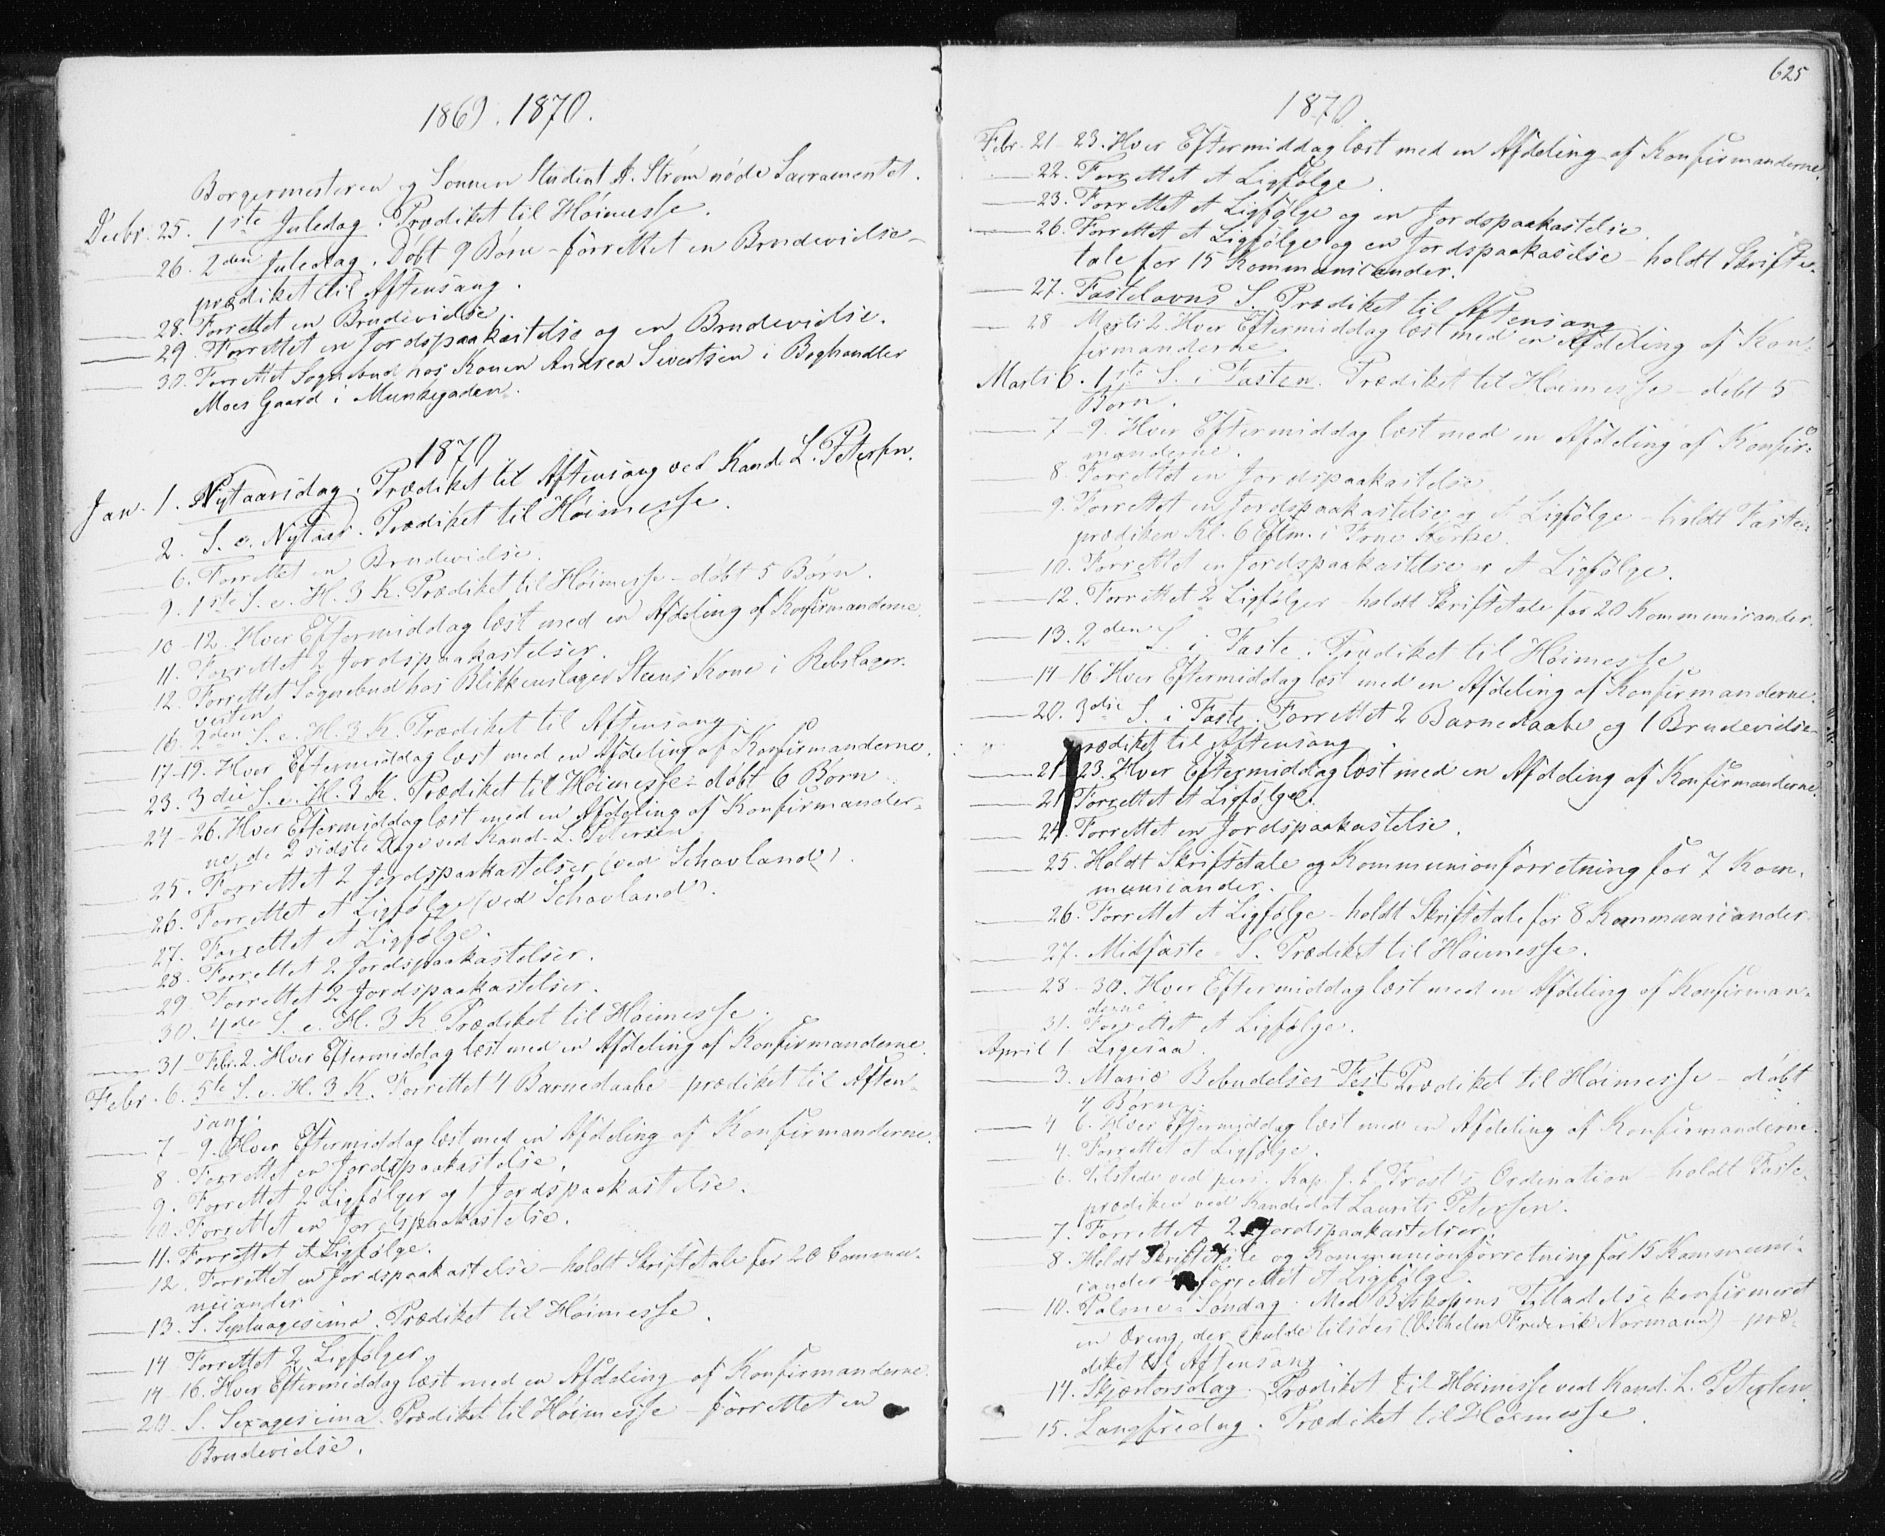 1869. 1870.
Borgermesteren og Sønnen Student A. Strøm nøde Sacramentet.
Decbr. 25. 1ste Juledag. Prædiket til Høimesse.
26. 2den Juledag. Døbt 9 Børn - forrettet en Brudevidse -
prædiket til Aftensang.
28. Forrettet en Brudevidse.
29. Forrettet en Jordspaakastelse og en Brudevidse.
30. Forrettet Sognebud hos Konen Andrea Sivertsen i Boghandler
Moes Gaard i Munkegaden.
1870
Jan. 1. Nytaarsdag. Prædiket til Aftensang ved Kand. L. Petersen.
2. S. e. Nytaar. Prædiket til Høimesse.
6. Forrettet en Brudevidse.
9. 1ste S. e. H. 3 K. Prædiket til Høimesse - døbt 5 Børn.
10-12. Hver Eftermiddag læst med en Afdeling af Konfirmanderne.
11. Forrettet 2 Jordspaakastelser.
12. Forrettet Sognebud hos Blikkenslager Steens Kone i Rebslager-
veiten
16. 2den S. e. H. 3 K. Prædiket til Aftensang.
17-19. Hver Eftermiddag læst med en Afdeling af Konfirmanderne.
23. 3die S. e. H. 3 K. Prædiket til Høimesse - døbt 6 Børn
24-26. Hver Eftermiddag læst med en Afdeling af Konfirmander-
ne, de 2 sidste Dage ved Kand. L. Petersen
25. Forrettet 2 Jordspaakastelser (ved Schavland).
26. Forrettet et Ligfølge (ved Schavland).
27. Forrettet et Ligfølge.
28. Forrettet 2 Jordspaakastelser.
29. Forrettet 2 Jordspaakastelser.
30. 4de S. e. H. 3 K. Prædiket til Høimesse.
31 - Febr. 2. Hver Eftermiddag læst med en Afdeling af Konfirmanderne.
Febr. 6. 5te S. e. H. 3 K. Forrettet 4 Barnedaabe - prædiket til Aften-
sang.
7-9. Hver Eftermiddag læst med en Afdeling af Konfirmanderne.
8. Forrettet en Jordspaakastelse.
9. Forrettet 2 Ligfølger og 1 Jordspaakastelse.
10. Forrettet en Jordspaakastelse.
11. Forrettet et Ligfølge.
12. Forrettet en Jordspaakastelse - holdt Skriftetale for 20 Commu-
nicander
13. S. Septuagesima. Prædiket til Høimesse.
14. Forrettet 2 Ligfølger.
14-16. Hver Eftermiddag læst med en Afdeling af Konfirmanderne.
20. S. Sexagesima. Prædiket til Høimesse - forrettet en
Brudevidse.
625
1870.
Febr. 21-23. Hver Eftermiddag læst med en Afdeling af Konfirmanderne.
22. Forrettet et Ligfølge.
23. Forrettet et Ligfølge og en Jordspaakastelse.
26. Forrettet et Ligfølge og en Jordspaakastelse - holdt Skrifte-
tale for 15 Kommunicander.
27. Fastelavns S. Prædiket til Aftensang
28 - Marts 2. Hver Eftermiddag læst med en Afdeling af Kon-
firmanderne.
Marts 6. 1ste S. i Fasten. Prædiket til Høimesse - døbt 5
Børn.
7-9. Hver Eftermiddag læst med en Afdeling af Konfir-
manderne.
8. Forrettet en Jordspaakastelse
9. Forrettet en Jordspaakastelse og et Ligfølge - holdt Faste-
prædiken Kl. 6 Eftm. i Frue Kirke.
10. Forrettet en Jordspaakastelse og et Ligfølge.
12. Forrettet 2 Ligfølger - holdt Skriftetale for 20 Kommunicander.
13. 2den S. i Faste. Prædiket til Høimesse
14-16 Hver Eftermiddag læst med en Afdeling af Konfirmanderne.
20. 3die S. i Faste. Forrettet 2 Barnedaabe og 1 Brudevidse -
prædiket til Aftensang.
21-23. Hver Eftermiddag læst med en Afdeling af Konfirmanderne.
21. Forrettet et Ligfølge.
24. Forrettet en Jordspaakastelse.
25. Holdt Skriftetale og Kommunionforretning for 7 Kom-
municander.
26. Forrettet et Ligfølge - holdt Skriftetale for 8 Kommunicander.
27. Midfaste S. Prædiket til Høimesse.
28-30. Hver Eftermiddag læst med en Afdeling af Konfirman-
derne
31. Forrettet et Ligfølge.
April 1. Ligesaa.
3. Mariæ Bebudelses Fest. Prædiket til Høimesse - døbt
4 Børn.
4-6. Hver Eftermiddag læst med en Afdeling af Konfirmanderne.
4. Forrettet et Ligfølge.
6. Tilstede ved pers. Kap. Frost's Ordination - holdt Faste-
prædiken ved Kandidat Laurits Petersen.
7. Forrettet 2 Jordspaakastelser.
8. Holdt Skriftetale og Kommunionforretning for 15 Kommuni-
cander - forrettet et Ligfølge.
10. Palme-Søndag. Med Biskopens Tilladelse konfirmeret
en Dreng, der skulde tilsøes (Vilhelm Frederik Normann) - præ-
diket til Aftensang
14. Skjærtorsdag. Prædiket til Høimesse ved Kand. L. Petersen.
15. Langfredag. Prædiket til Høimesse.